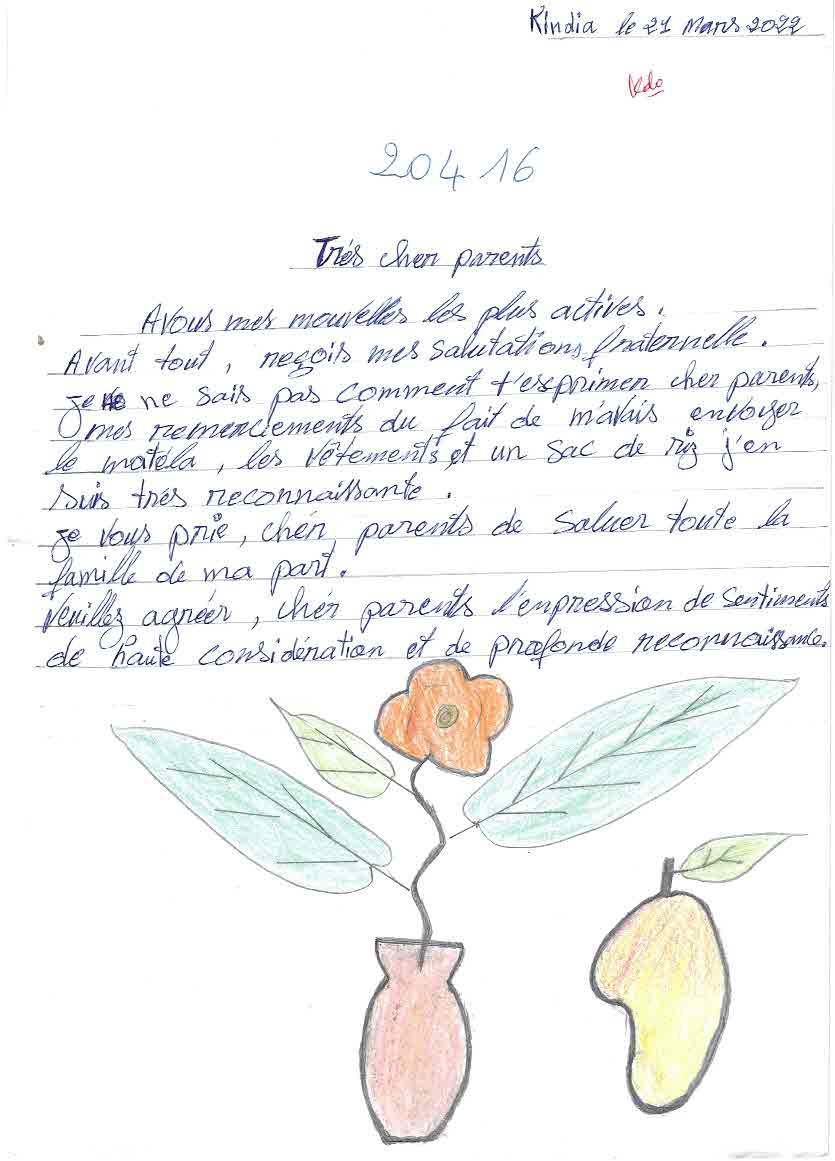 Kindia le 21 Mars 2022
Kdo
204 16
Très cher parents
A vous mes nouvelles les plus actives.
Avant tout, reçois mes salutations fraternelle.
je ne ne sais pas comment t'exprimer cher parents,
mes remerciements du fait de m'avais envoyer
le matela, les vêtements et un sac de riz j'en
suis très reconnaissante.
je vous prie, chér parents de saluer toute la
famille de ma part.
Veuillez agréer, chér parents l'expression de sentiments
de haute considération et de profonde reconnaissance.